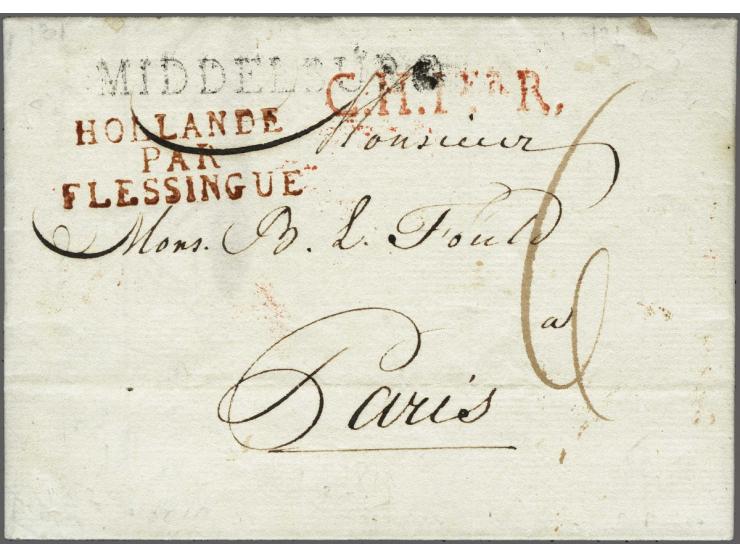 MIDDELBURG
C.H.1ERR.
HOLLANDE
PAR
FLESSINGUE
Monsieur
Mons. B. L. Fould
a
Paris